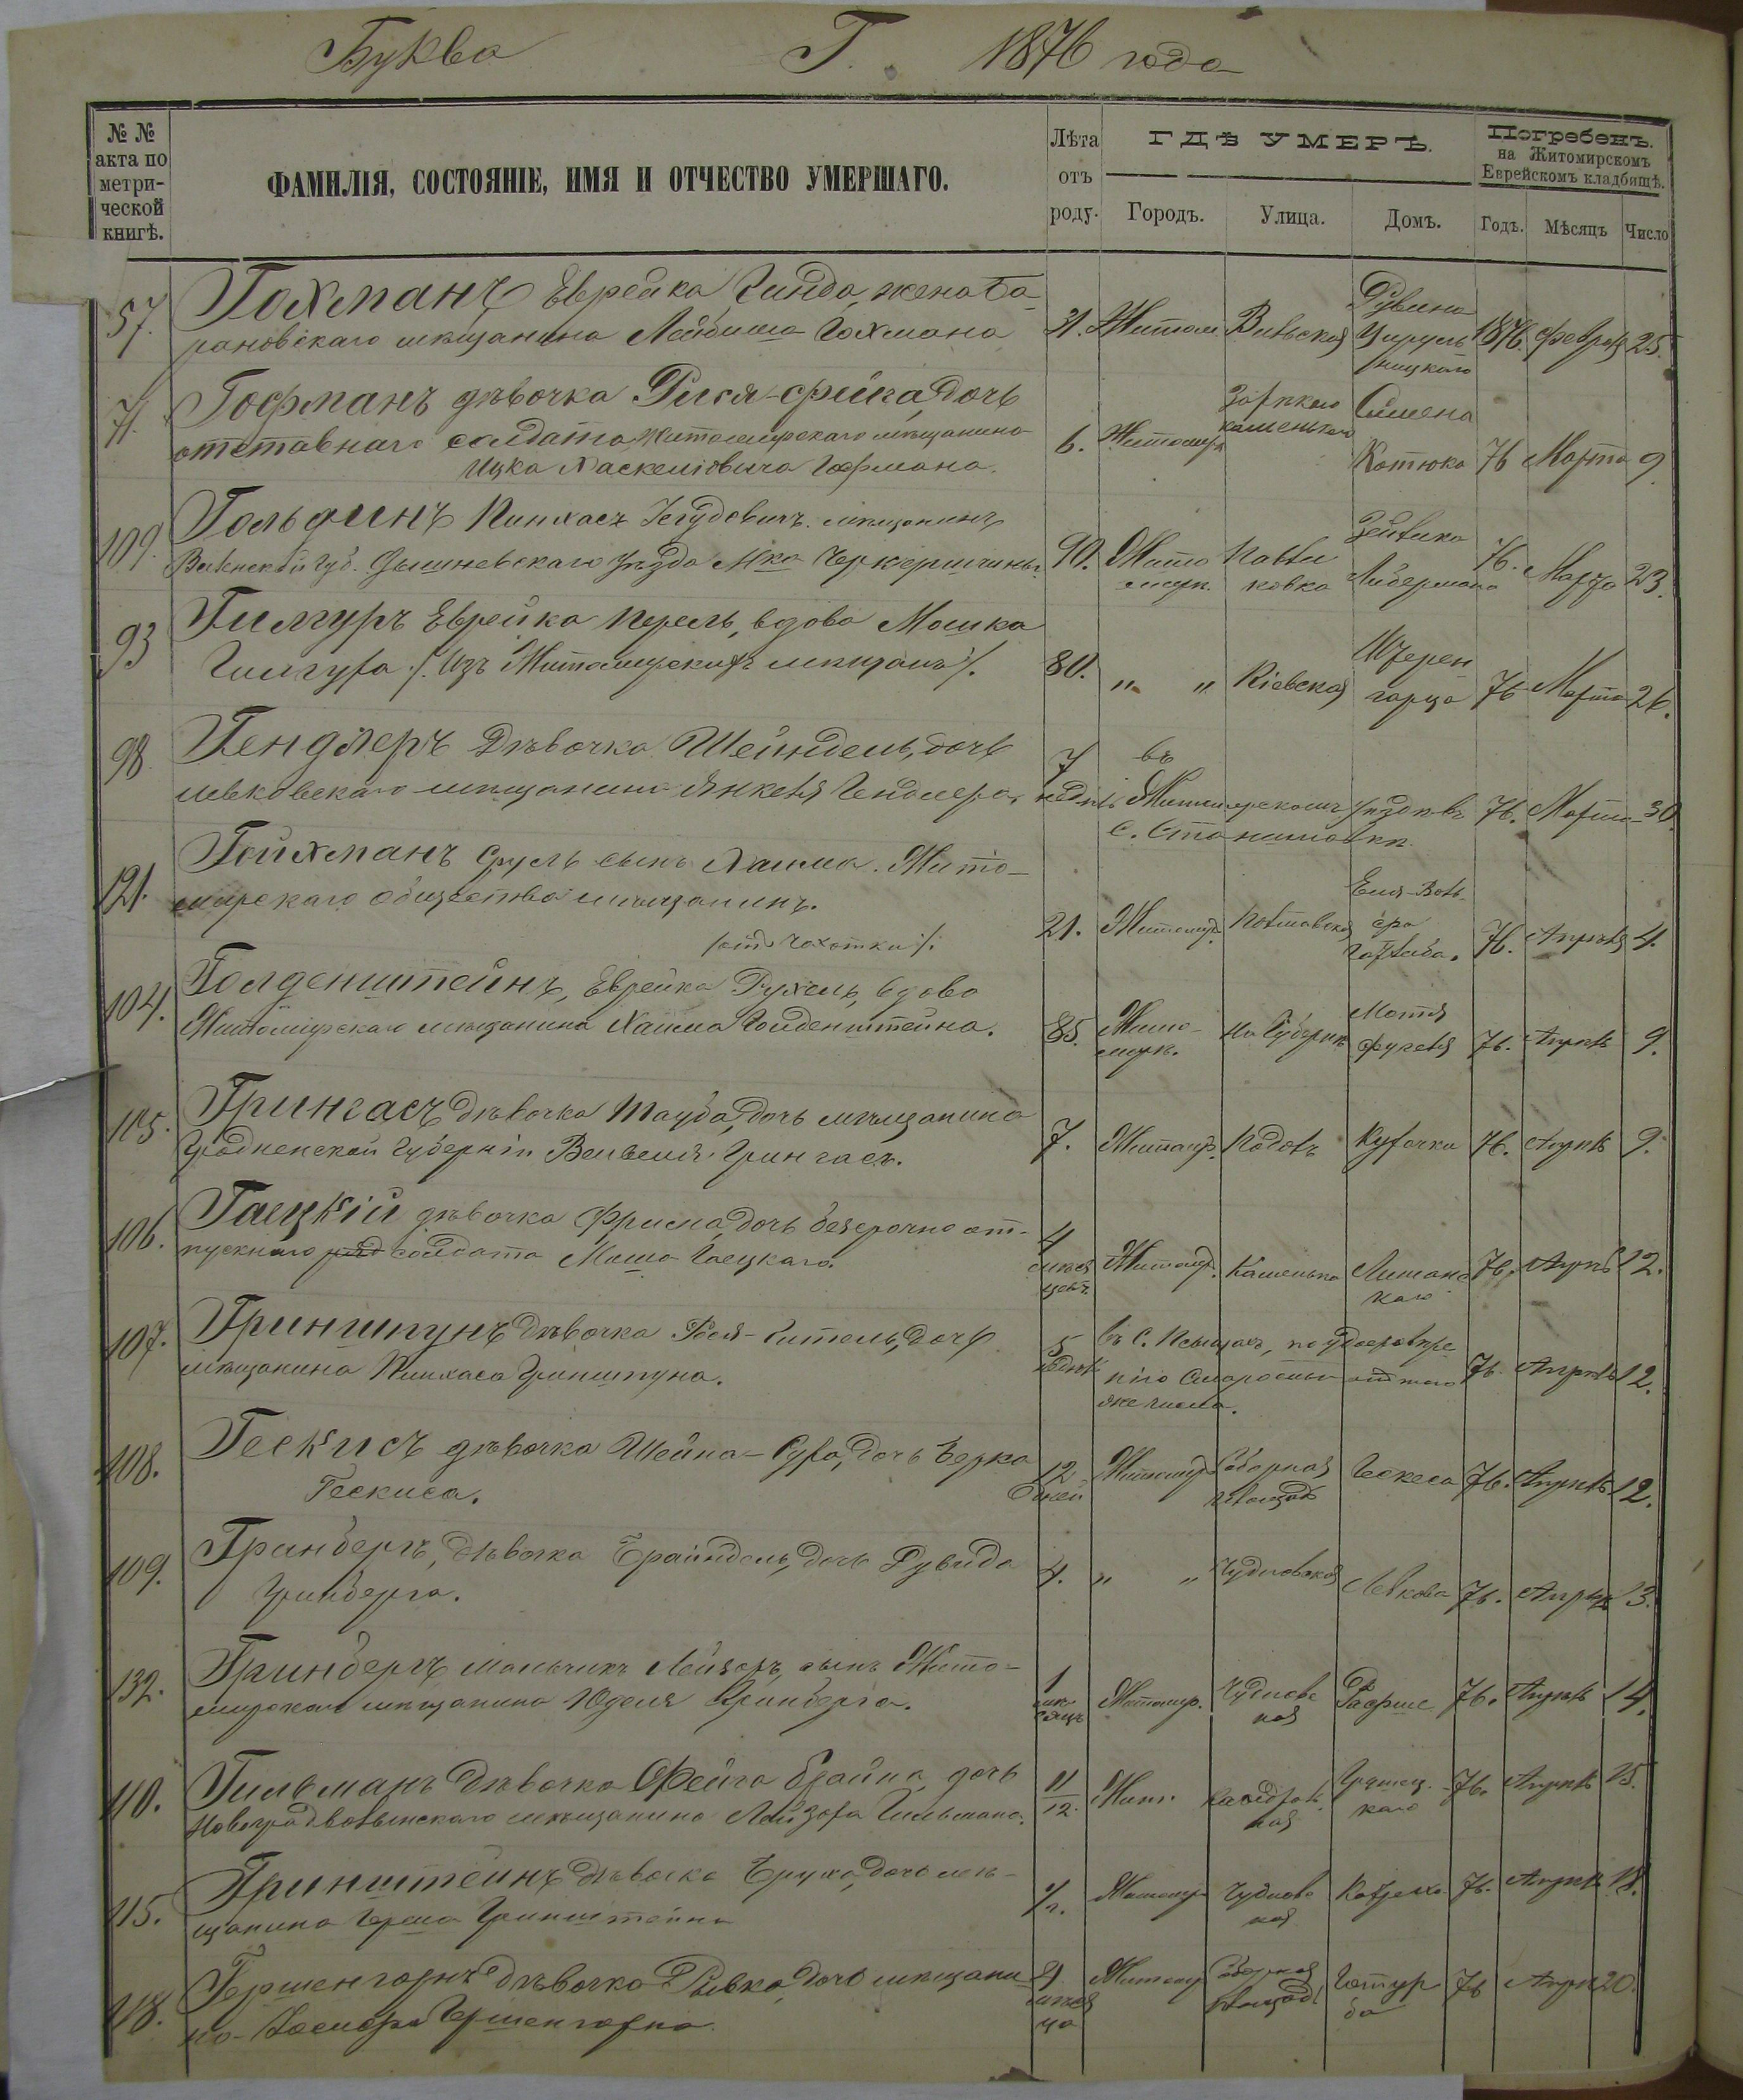 Буква Г. 1876 года
№ №
акта по
метри-
ческой
книгѣ.
ФАМИЛІЯ, СОСТОЯНІЕ, ИМЯ И ОТЧЕСТВО УМЕРШАГО.
Лѣта
отъ
роду.
ГДѢ УМЕРЪ.
Городъ. Улица. Домъ.
Погребенъ.
на Житомирскомъ
Еврейскомъ кладбищѣ.
Годъ. Мѣсяцъ Число
57. Гохманъ Еврейка Гинда, жена Ба-
рановскаго мѣщанина Лейбиша Гохмана
31. Житом. Вильская Рувина 1876. Февраля 25.
71. Гофманъ дѣвочка Рися-Фейга, дочь
отставнаго солдата, Житомирскаго мѣщанина
Ицка Хаскелювича Гофмана.
6. Житомиръ Семена
Котюка 76 Марта 9
109. Гольдинъ Пинхасъ Іегудовичъ. мѣщанинъ
Виленской губ. уѣзда Мка
90. Жито
миръ. Павли
ковка Зейвика
Либермана 76. Марта 23.
93 Гилгуръ Еврейка Перель, вдова Мошка
Гилгура /. Изъ Житомирскихъ мѣщанъ /.
80. " " Кіевская 76 Марта 26.
98 Гендлеръ Дѣвочка Шейндель, дочь
левковскаго мѣщанина Янкеля Гендлера,
7
недѣль въ
Житомирскомъ уѣздѣ въ
с. Станишовкѣ 76. Марта 30.
121. Гойхманъ Сруль сынъ Хаима. Жито-
мирскаго общества мѣщанинъ.
/отъ чахотки/.
21. Житомир. Полтавская 76. Апрѣля 4.
104. Голденштейнъ, Еврейка Рухель, вдова
Житомірскаго мѣщанина Хаима Голденштейна.
85. Жито-
миръ. Мотя 76. Апрѣля 9.
105. Грингасъ дѣвочка Тауба, дочь мѣщанина
Гродненской Губерніи Велвеля Грингасъ.
7. Житомир. Подолъ Курочки 76. Апрѣля 9.
106. Гаецкій дѣвочка Фрима, дочь безсрочно от-
пускнаго солдата Моша Гаецкаго.
4
мѣся
цевъ Житомир. Каменька 76. Апрѣля 12.
107. Гриншпунъ дѣвочка Рося-Гитель, дочь
мѣщанина Пинхаса Гриншпуна.
5
лѣтъ въ с. Псыщахъ, по удостовѣре
нію Старосты отъ того
же числа. 76. Апрѣля 12.
108. Гескисъ дѣвочка Шейна-Сура, дочь Берка
Гескиса.
12
дней Житомир Соборная
площадь Гескеса 76. Апрѣля 12.
109. Гринбергъ, дѣвочка Брайндель, дочь Рувида
Гринберга.
4. " " Чудновская Левкова 76. Апрѣля 13.
132. Гринбергъ мальчикъ Лейзоръ, сынъ Жито-
мирскаго мѣщанина Юделя Гринберга.
1
мѣ
сяцъ Житомир. Чудновс
кая 76. Апрѣля 14.
110. Гильманъ дѣвочка Фейга Брайна, дочь
Новоградволынскаго мѣщанина Лейзора Гильмана.
11/12. Житом. 76. Апрѣля 15.
115. Гринштейнъ дѣвочка Бруха, дочь мѣ-
щанина Герша Гринштейна
1/2. Житомир Чуднов
кая 76. Апрѣля 18.
118. Гершенгорнъ дѣвочка Ривка, дочь мѣщани
на Гершенгорна.
4
мѣся
ца Житомир Соборная
площадь 76 Апрѣ 20.